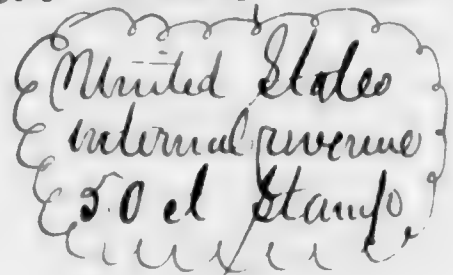 United States
internal revenue
50 ct Stamp